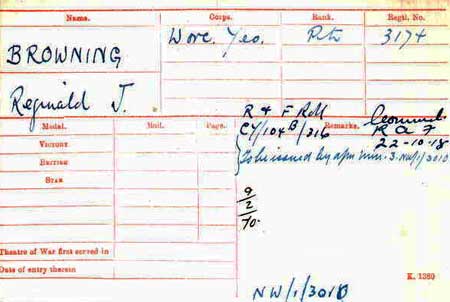 Name. Corps. Rank. Regtl. No.
BROWNING Worc. Yeo. Pte 3174
Reginald J.
R & F Roll
CY/104B/216 Remarks. Commnd.
R A F
22-10-18
Medal. Roll. Page.
Victory
British
Star
To be issued by Air Min: 3. NW/1/3010
9
2
70.
Theatre of War first served in
Date of entry therein
K. 1380
NW/1/3010